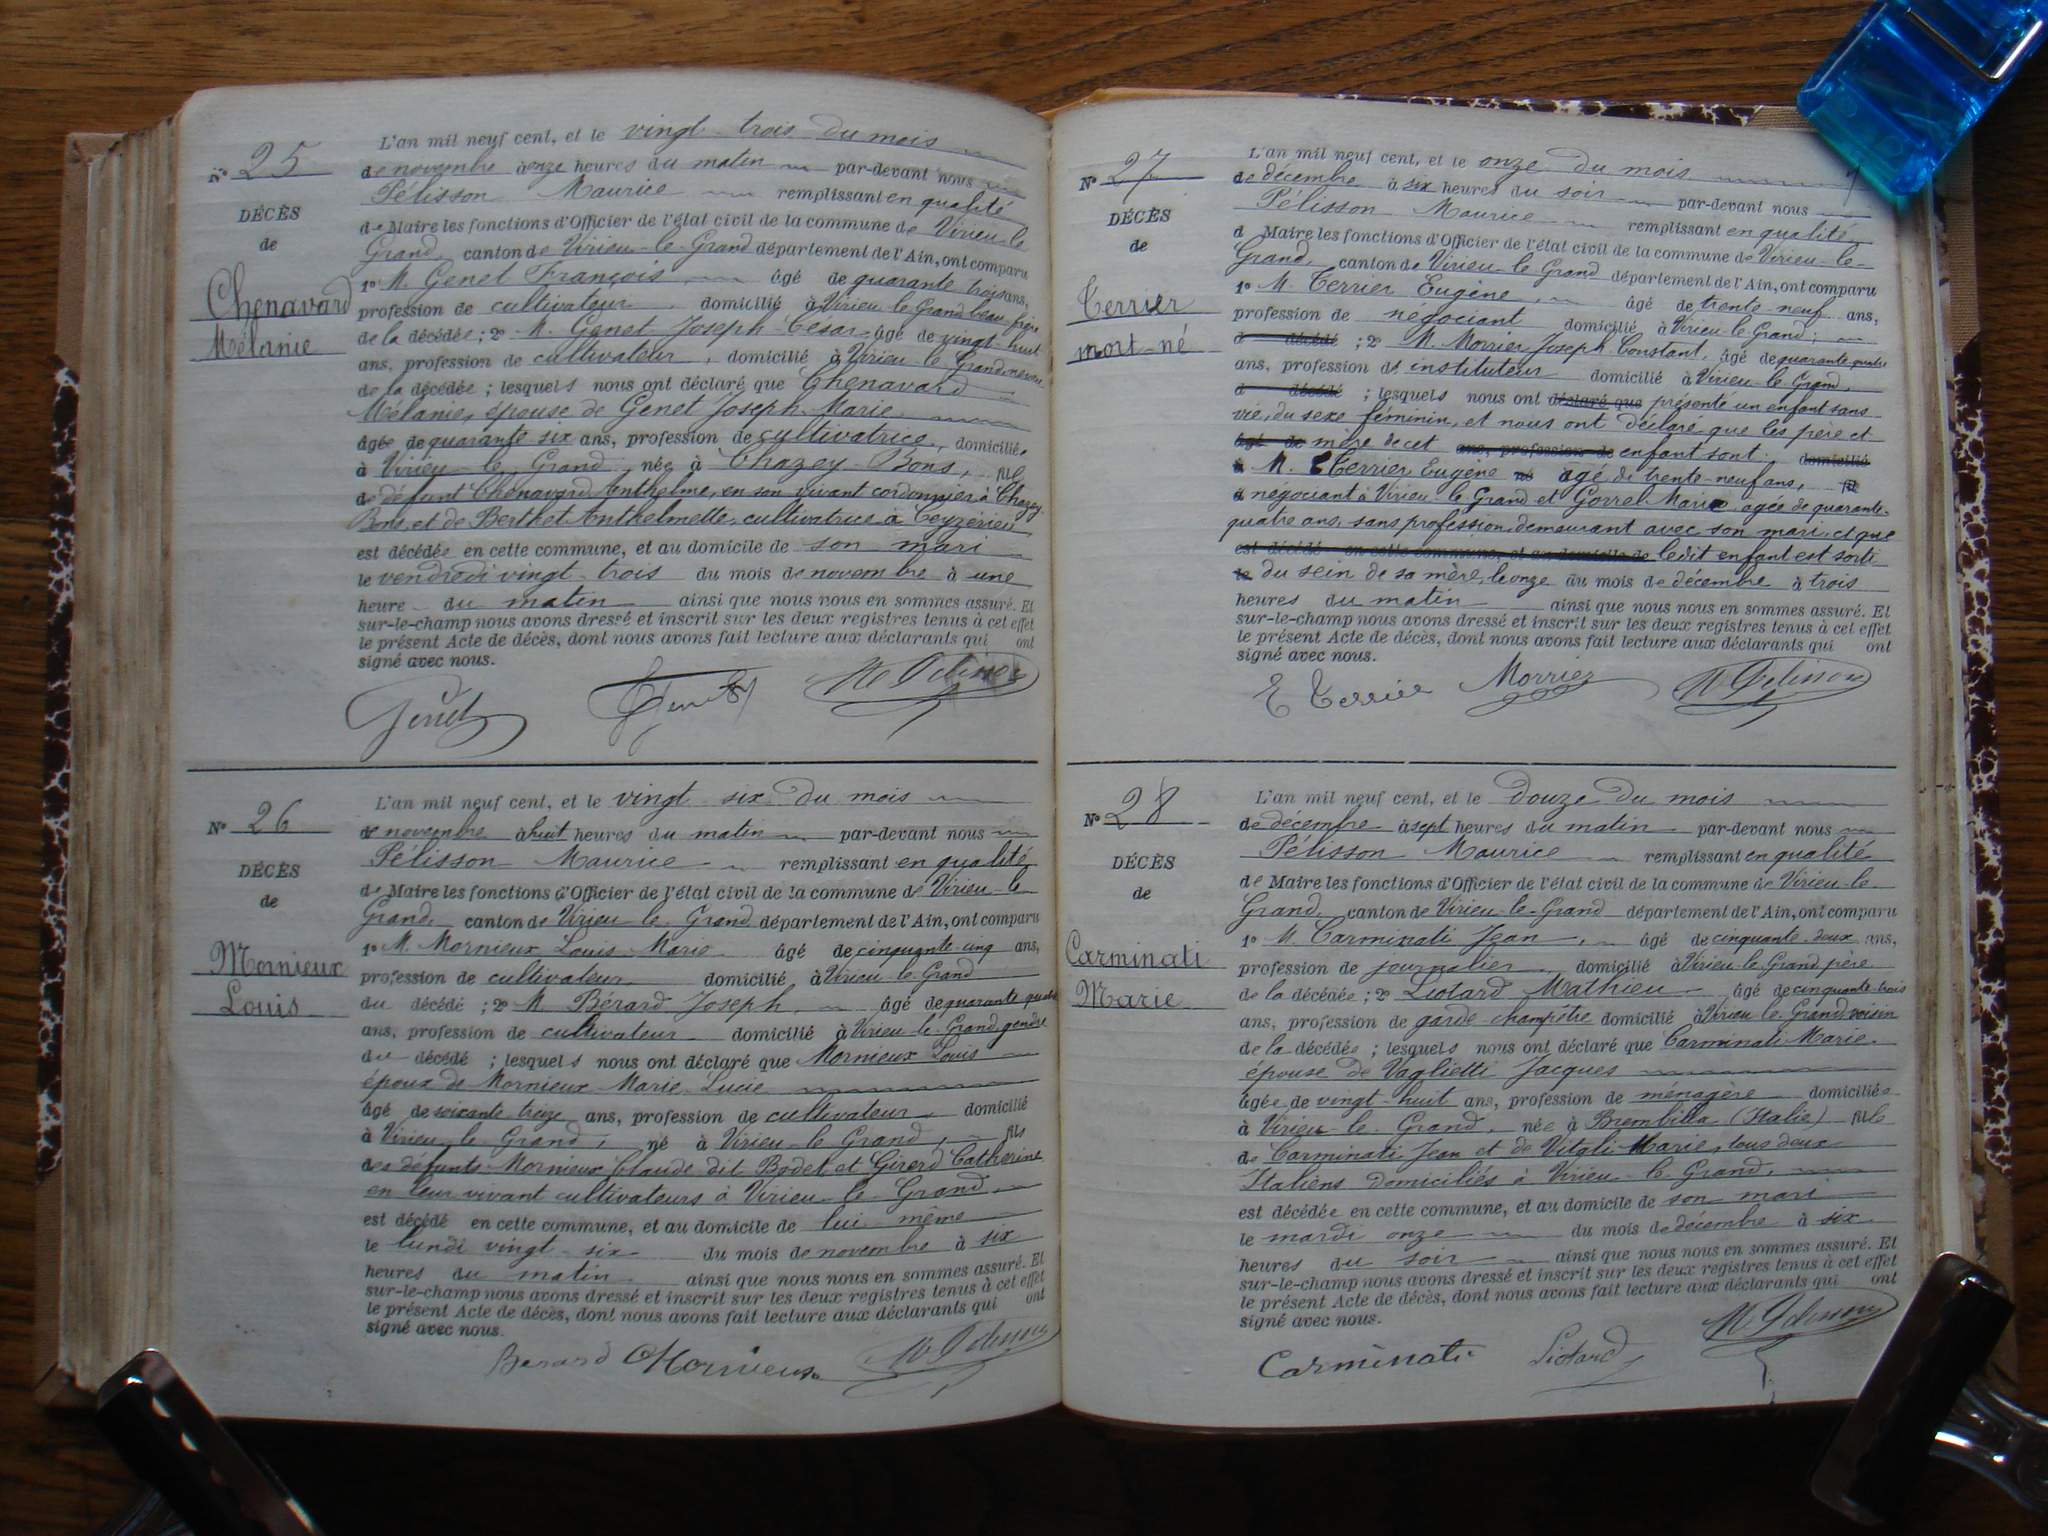 N° 25
DÉCÈS
de
Chenavard
Mélanie
L'an mil neuf cent, et le vingt-trois du mois
de novembre à onze heures du matin par-devant nous
Pélisson Maurice remplissant en qualité
de Maire les fonctions d'Officier de l'état civil de la commune de Virieu-le
Grand, canton de Virieu-le-Grand département de l'Ain, ont comparu
1° M. Genet François âgé de quarante trois ans,
profession de cultivateur, domicilié à Virieu le Grand beau-frère
de la décédée ; 2° M. Genet Joseph-César âgé de vingt-huit
ans, profession de cultivateur, domicilié à Virieu le Grand neveu
de la décédée ; lesquels nous ont déclaré que Chenavard
Mélanie, épouse de Genet Joseph-Marie
âgée de quarante six ans, profession de cultivatrice, domiciliée
à Virieu-le-Grand née à Chazey-Bons, fille
de défunt Chenavard Anthelme, en son vivant cordonnier à Chazey
Bons, et de Berthet Anthelmette, cultivatrice à Ceyzérieu
est décédée en cette commune, et au domicile de son mari
le vendredi vingt-trois du mois de novembre à une
heure du matin ainsi que nous nous en sommes assuré. Et
sur-le-champ nous avons dressé et inscrit sur les deux registres tenus à cet effet
le présent Acte de décès, dont nous avons fait lecture aux déclarants qui ont
signé avec nous.
Genet Genet M Pelisson
N° 26
DÉCÈS
de
Mornieux
Louis
L'an mil neuf cent, et le vingt-six du mois
de novembre à huit heures du matin par-devant nous
Pélisson Maurice remplissant en qualité
de Maire les fonctions d'Officier de l'état civil de la commune de Virieu-le
Grand, canton de Virieu-le-Grand département de l'Ain, ont comparu
1° M. Mornieux Louis-Marie âgé de cinquante-cinq ans,
profession de cultivateur domicilié à Virieu-le-Grand
du décédé ; 2° M Bérard Joseph, âgé de quarante quatre
ans, profession de cultivateur domicilié à Virieu-le-Grand, gendre
du décédé ; lesquels nous ont déclaré que Mornieux Louis
époux de Mornieux Marie-Lucie
âgé de soixante treize ans, profession de cultivateur, domicilié
à Virieu-le-Grand, né à Virieu-le-Grand, fils
des défunts Mornieux Claude dit Bodet et Girerd Catherine
en leur vivant cultivateurs à Virieu-le-Grand,
est décédé en cette commune, et au domicile de lui-même
le lundi vingt-six du mois de novembre à six
heures du matin ainsi que nous nous en sommes assuré. Et
sur-le-champ nous avons dressé et inscrit sur les deux registres tenus à cet effet
le présent Acte de décès, dont nous avons fait lecture aux déclarants qui ont
signé avec nous.
Berard Mornieux M Pelisson
N° 27
DÉCÈS
de
Terrier
mort-né
L'an mil neuf cent, et le onze du mois
de décembre à six heures du soir par-devant nous
Pélisson Maurice remplissant en qualité
d Maire les fonctions d'Officier de l'état civil de la commune de Virieu-le-
Grand, canton de Virieu-le-Grand département de l'Ain, ont comparu
1° M. Terrier Eugène, âgé de trente-neuf ans,
profession de négociant domicilié à Virieu-le-Grand;
d décédé ; 2° M. Morrier Joseph Constant, âgé de quarante quatre
ans, profession de instituteur domicilié à Virieu-le-Grand,
d décédé ; lesquels nous ont déclaré que présenté un enfant sans
vie, du sexe féminin, et nous ont déclaré que les père et
âgé de mère de cet ans, profession de enfant sont : domicilié
à M. Terrier Eugène né âgé de trente-neuf ans, fil
d négociant à Virieu-le-Grand et Gorrel Marie âgée de quarante-
quatre ans, sans profession, demeurant avec son mari, et que
est décédé en cette commune, et au domicile de ledit enfant est sorti
le du sein de sa mère, le onze du mois de décembre à trois
heures du matin ainsi que nous nous en sommes assuré. Et
sur-le-champ nous avons dressé et inscrit sur les deux registres tenus à cet effet
le présent Acte de décès, dont nous avons fait lecture aux déclarants qui ont
signé avec nous.
E Terrier Morrier M Pelisson
N° 28
DÉCÈS
de
Carminati
Marie
L'an mil neuf cent, et le Douze du mois
de décembre à sept heures du matin par-devant nous
Pélisson Maurice remplissant en qualité
de Maire les fonctions d'Officier de l'état civil de la commune de Virieu-le-
Grand, canton de Virieu-le-Grand département de l'Ain, ont comparu
1° M. Carminati Jean, âgé de cinquante-deux ans,
profession de journalier domicilié à Virieu-le-Grand père
de la décédée ; 2° Liotard Mathieu âgé de cinquante-trois
ans, profession de garde-champêtre domicilié à Virieu-le-Grand voisin
de la décédée ; lesquels nous ont déclaré que Carminati Marie
épouse de Vaglietti Jacques
âgée de vingt-huit ans, profession de ménagère domiciliée
à Virieu-le-Grand, née à Brembilla (Italie) fille
de Carminati Jean et de Vitali Marie, tous deux
Italiens domiciliés à Virieu-le-Grand,
est décédée en cette commune, et au domicile de son mari
le mardi onze du mois de décembre à six
heures du soir ainsi que nous nous en sommes assuré. Et
sur-le-champ nous avons dressé et inscrit sur les deux registres tenus à cet effet
le présent Acte de décès, dont nous avons fait lecture aux déclarants qui ont
signé avec nous.
Carminati Liotard M Pelisson